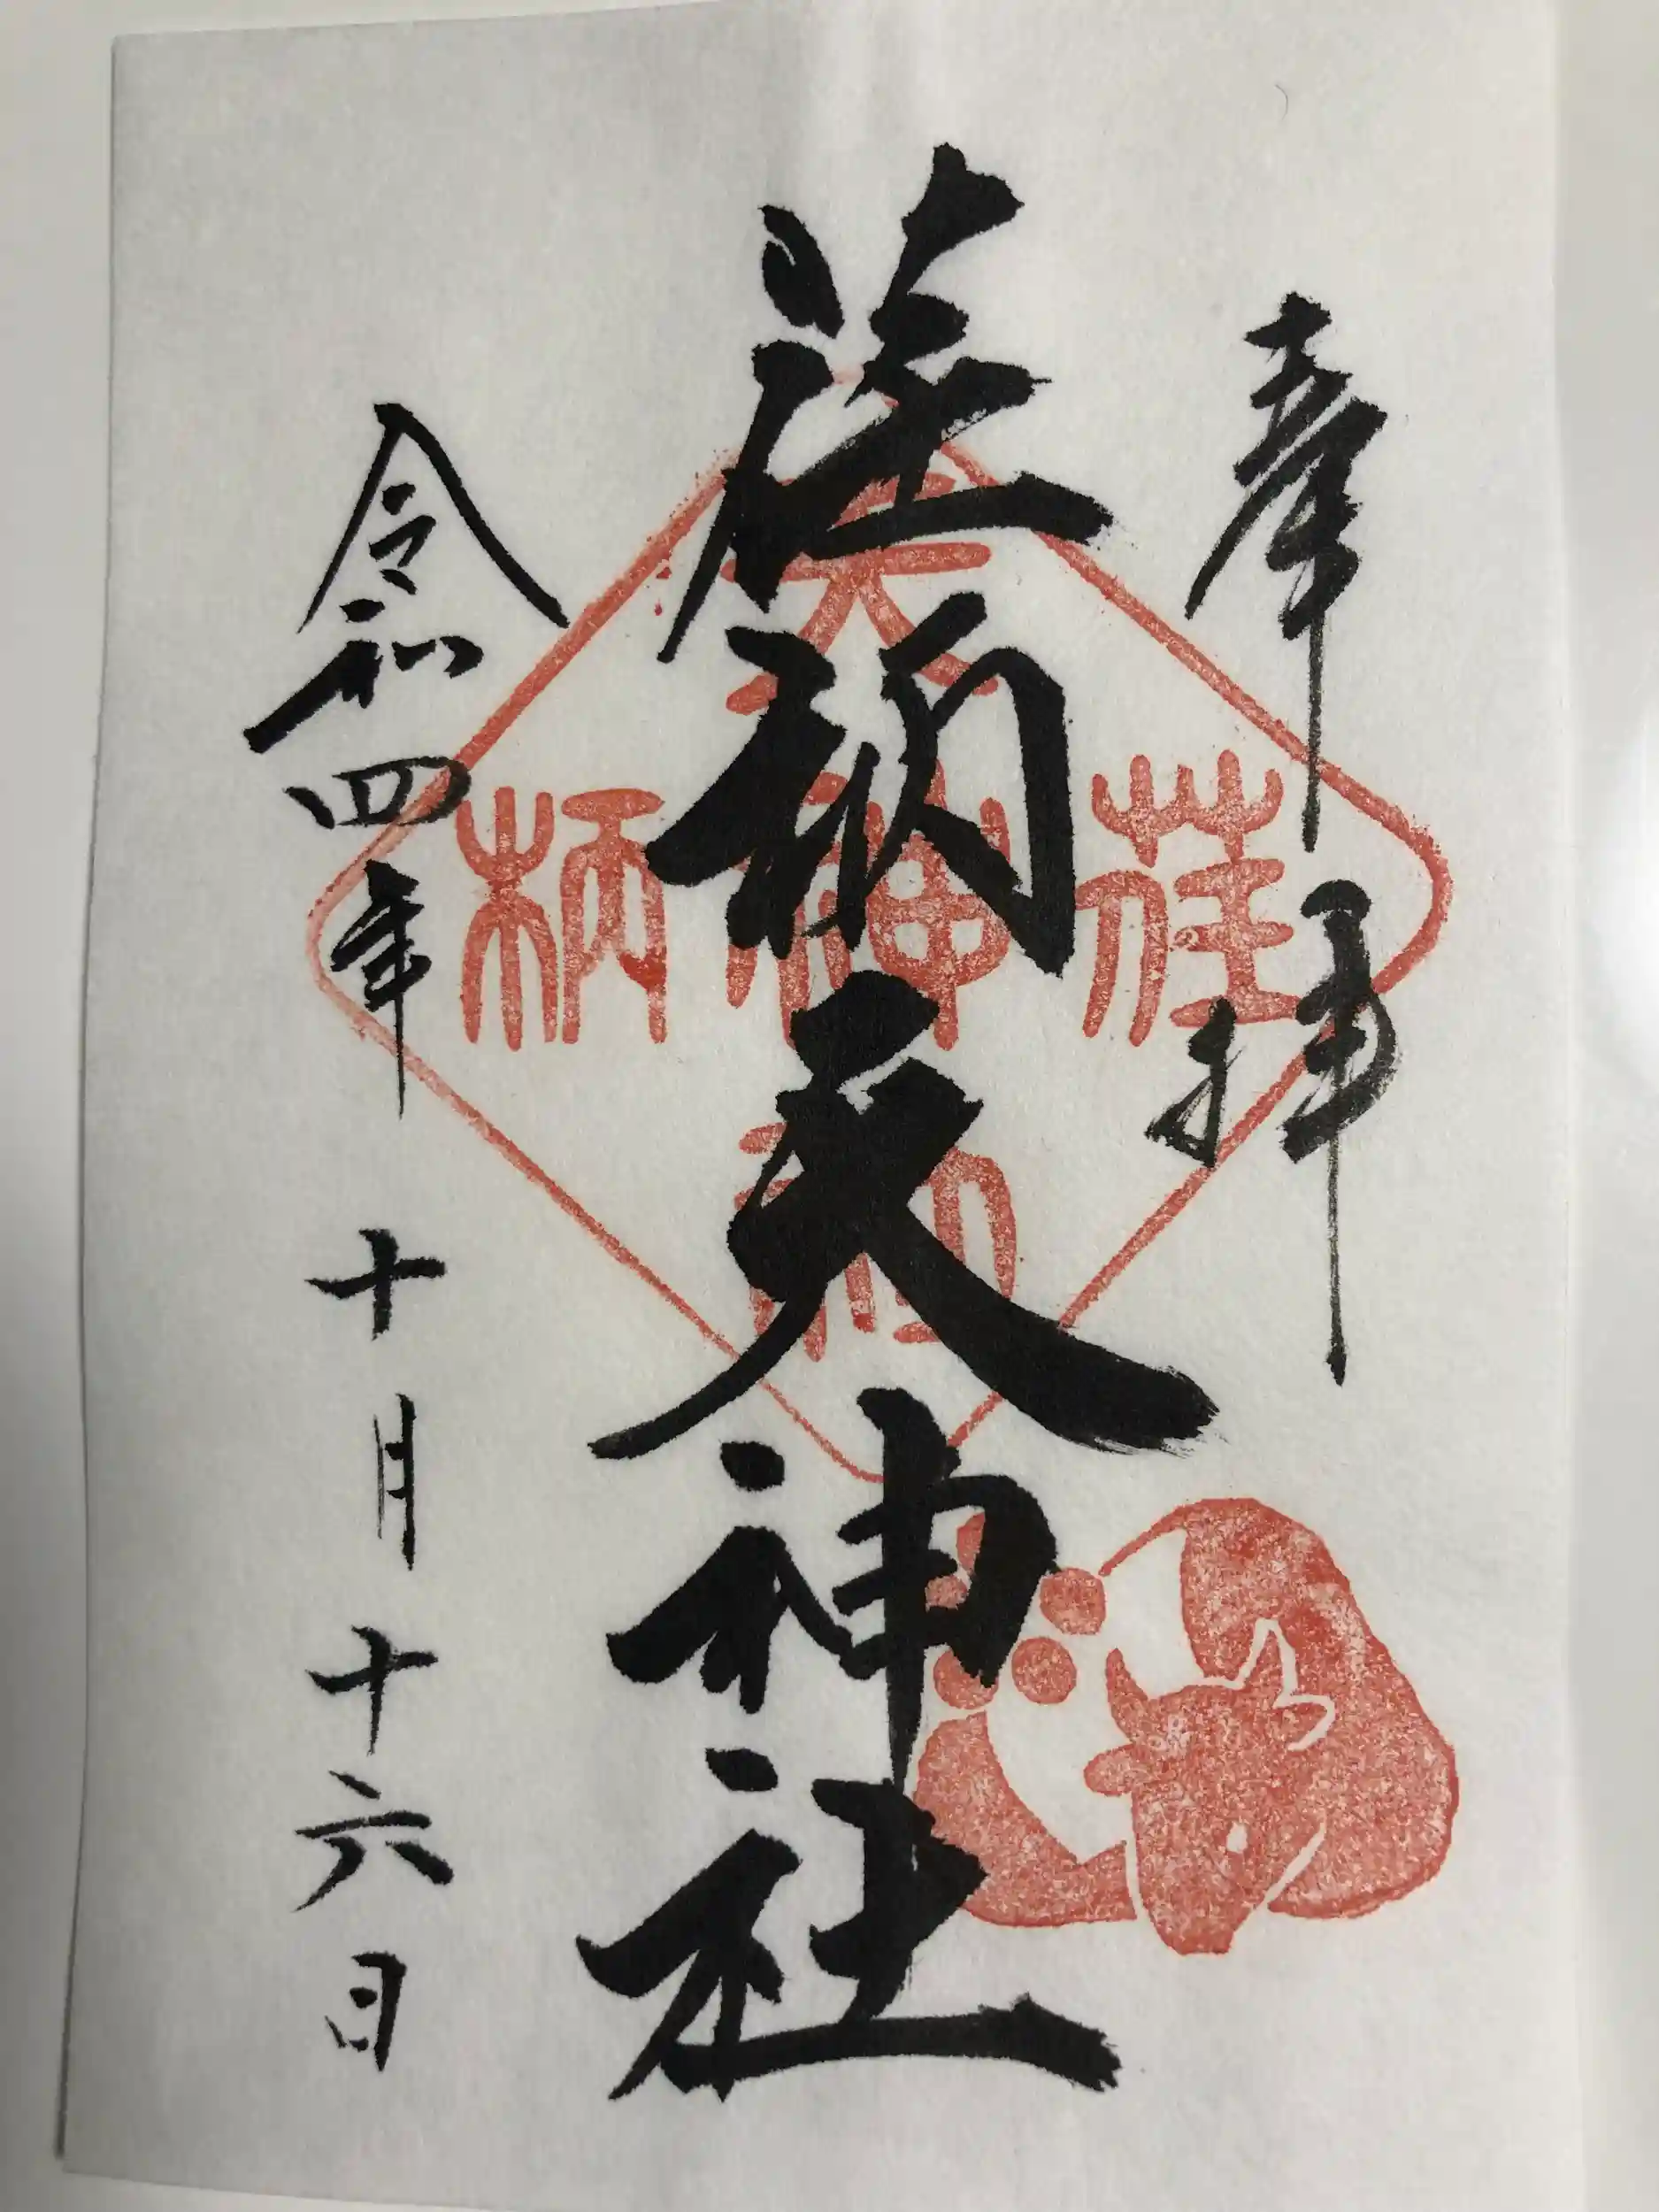 奉拝
荏柄天神社
令和四年十月十六日
荏
天神社
柄